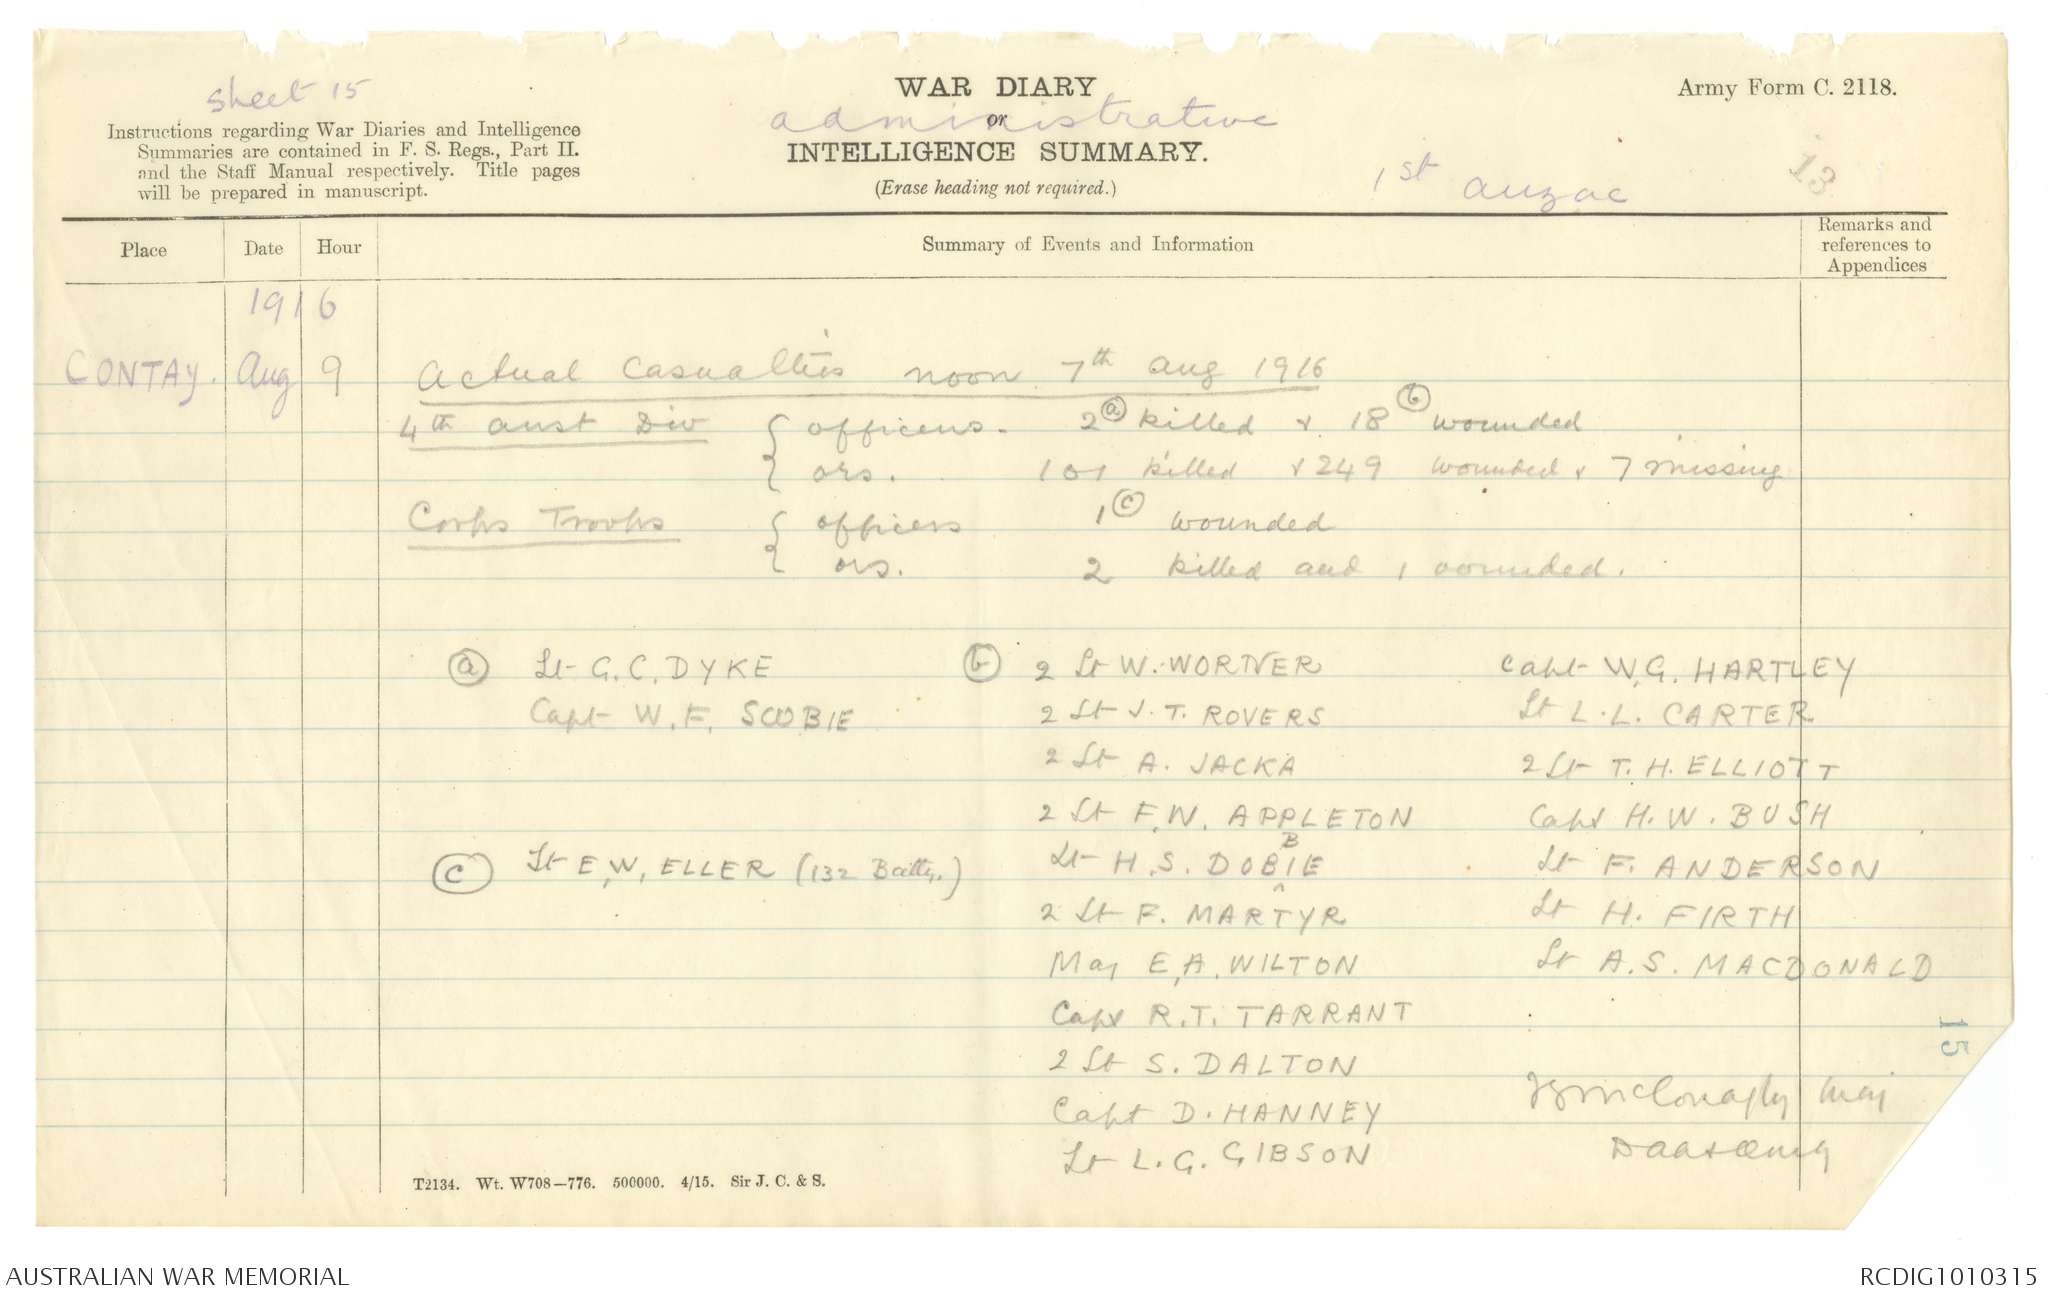 Sheet 15
WAR DIARY
or
administrative
INTELLIGENCE SUMMARY.
(Erase heading not required.)
Army Form C. 2118.
Instructions regarding War Diaries and Intelligence
Summaries are contained in F. S. Regs., Part II.
and the Staff Manual respectively. Title pages
will be prepared in manuscript.
1st Anzac
13
Place Date Hour Summary of Events and Information Remarks and references to Appendices
1916
CONTAY. Aug 9 Actual Casualties noon 7th Aug 1916
4th Aust Div { officers. 2 (a) killed & 18 (b) wounded
ors. 101 killed & 249 wounded & 7 missing
Corps Troops { officers 1 (c) wounded
ors. 2 killed and 1 wounded.
(a) Lt G.C. DYKE
Capt W.F. SCOBIE
(c) Lt E.W. ELLER (132 Batty.)
(b) 2 Lt W. WORTNER
2 Lt J.T. ROVERS
2 Lt A. JACKA
2 Lt F.W. APPLETON
Lt H.S. DOBBIE
2 Lt F. MARTYR
Maj E.A. WILTON
Capt R.T. TARRANT
2 Lt S. DALTON
Capt D. HANNEY
Lt L.G. GIBSON
Capt W.G. HARTLEY
Lt L.L. CARTER
2 Lt T.H. ELLIOTT
Capt H.W. BUSH
Lt F. ANDERSON
Lt H. FIRTH
Lt A.S. MACDONALD
15
Maj
DAA&QMG
T2134. Wt. W708—776. 500000. 4/15. Sir J. C. & S.
AUSTRALIAN WAR MEMORIAL
RCDIG1010315